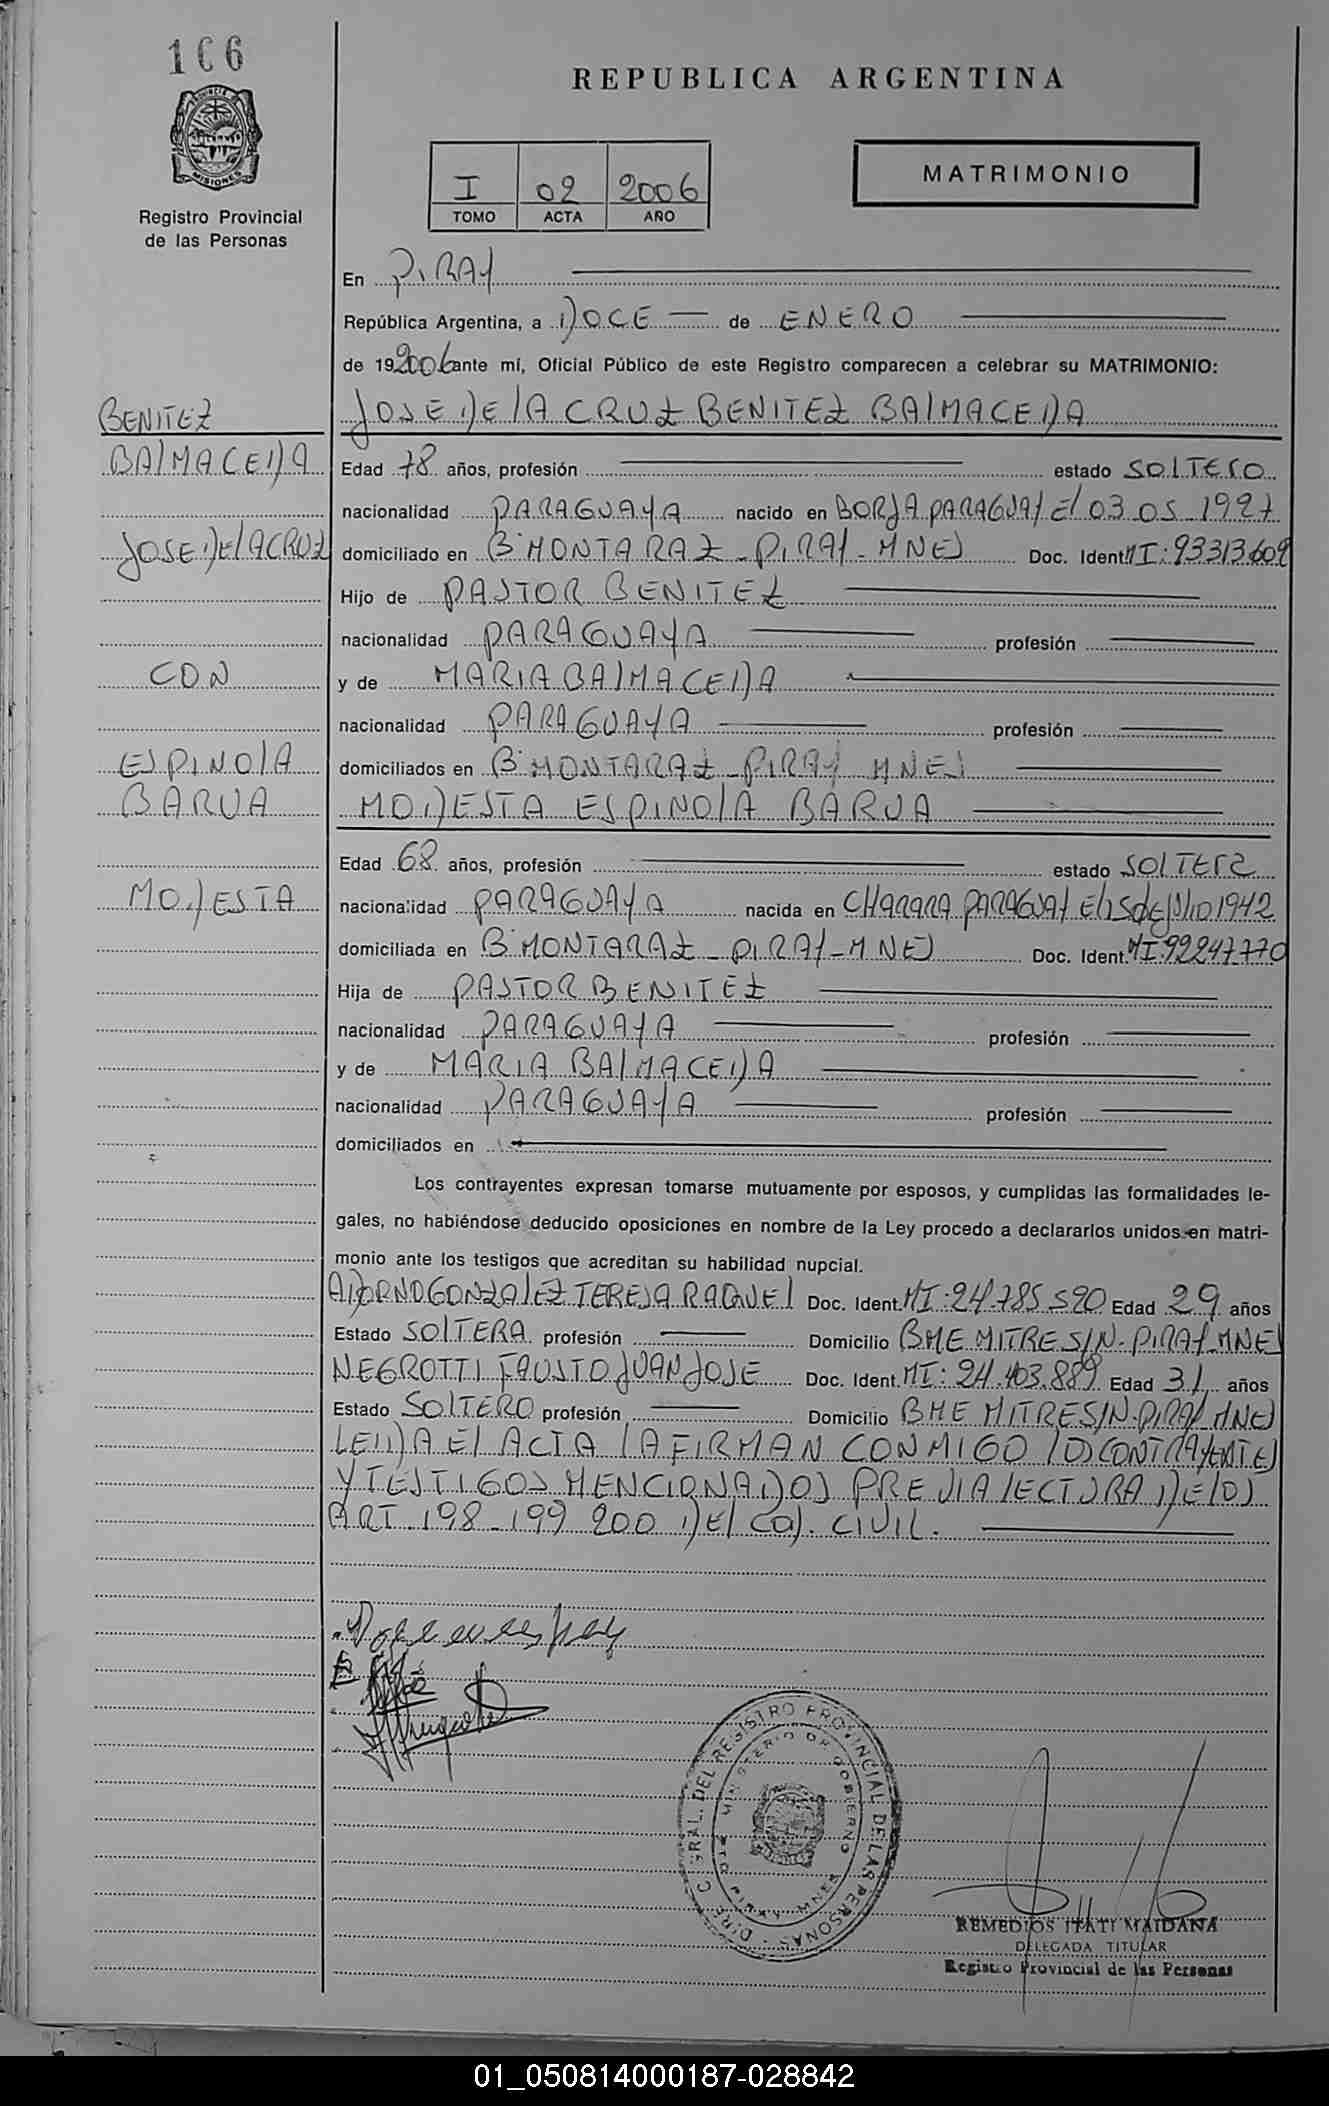 106
REPUBLICA ARGENTINA
MISIONES
Registro Provincial
de las Personas
I 02 2006
TOMO ACTA AÑO
MATRIMONIO
En PIRAY
República Argentina, a DOCE de ENERO
de 192006 ante mí, Oficial Público de este Registro comparecen a celebrar su MATRIMONIO:
BENITEZ
JOSE DE lA CRUZ BENITEZ BAlMACEDA
BAlMACEDA
Edad 78 años, profesión estado SOlTERO
nacionalidad PARAGUAYA nacido en BORJA PARAGUAY El 03 05 1927
JOSE DE lA CRUZ
domiciliado en Bº MONTARAZ - PIRAY - MNES Doc. Ident. MI: 93313.609
Hijo de PASTOR BENITEZ
nacionalidad PARAGUAYA profesión
CON
y de MARIA BAlMACEDA
nacionalidad PARAGUAYA profesión
ESPINOlA
domiciliados en Bº MONTARAZ - PIRAY MNES
BARUA
MODESTA ESPINOlA BARUA
Edad 68 años, profesión estado SOlTERA
MODESTA
nacionalidad PARAGUAYA nacida en CHARARA PARAGUAY El 15 de Julio 1942
domiciliada en Bº MONTARAZ - PIRAY - MNES Doc. Ident. MI: 92247.770
Hija de PASTOR BENITEZ
nacionalidad PARAGUAYA profesión
y de MARIA BAlMACEDA
nacionalidad PARAGUAYA profesión
domiciliados en
Los contrayentes expresan tomarse mutuamente por esposos, y cumplidas las formalidades le-
gales, no habiéndose deducido oposiciones en nombre de la Ley procedo a declararlos unidos en matri-
monio ante los testigos que acreditan su habilidad nupcial.
ADORNO GONZAlEZ TERESA RAQUEl Doc. Ident. MI: 24.785 590 Edad 29 años
Estado SOlTERA profesión Domicilio BME MITRE S/N - PIRAY - MNES
NEGROTTI FAUSTO JUAN JOSE Doc. Ident. MI: 24.403.889 Edad 31 años
Estado SOlTERO profesión Domicilio BME MITRE S/N - PIRAY MNES
lEIDA El ACTA lA FIRMAN CONMIGO lOS CONTRAYENTES
Y TESTIGOS MENCIONADOS PREVIA lECTURA DE lOS
ART 198 - 199 200 DEl COD. CIVIL.
DIREC. GRAL. DEL REGISTRO PROVINCIAL DE LAS PERSONAS
MINISTERIO DE GOBIERNO
PTO PIRAY MNES
REMEDIOS ITATI MAIDANA
DELEGADA TITULAR
Registro Provincial de las Personas
01_050814000187-028842